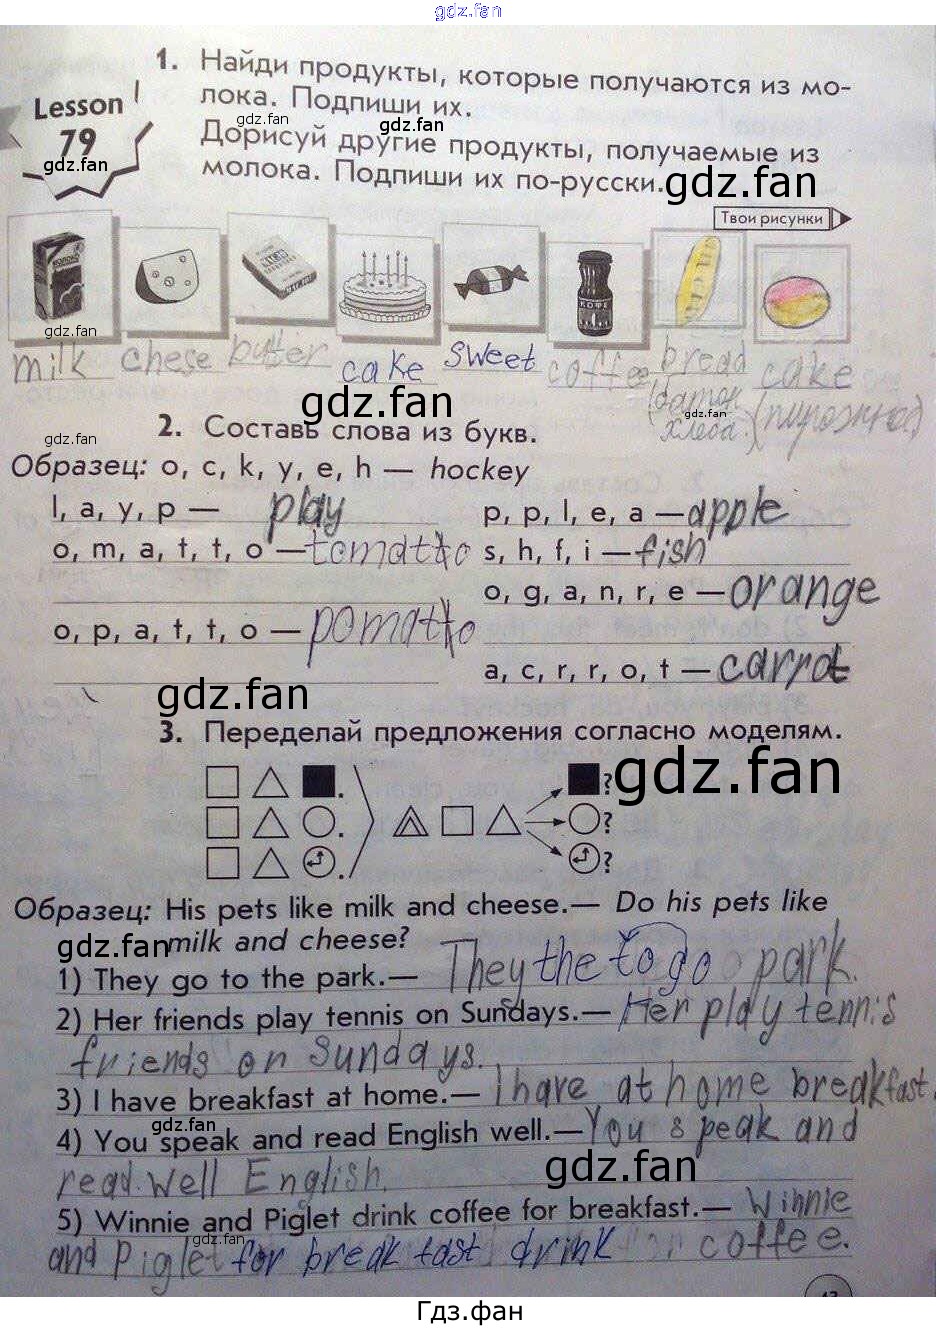 gdz.fan
1. Найди продукты, которые получаются из мо-
лока. Подпиши их.
Дорисуй другие продукты, получаемые из
молока. Подпиши их по-русски.
Lesson
79
gdz.fan
gdz.fan
gdz.fan
gdz.fan
Твои рисунки
МОЛОКО
КОФЕ
gdz.fan
milk chese butter cake sweet coffee bread cake
(батон хлеба.) (пирожное)
gdz.fan
gdz.fan
gdz.fan
2. Составь слова из букв.
Образец: o, c, k, y, e, h — hockey
l, a, y, p — play
p, p, l, e, a — apple
o, m, a, t, t, o — tomatto
s, h, f, i — fish
o, g, a, n, r, e — orange
o, p, a, t, t, o — pomatto
a, c, r, r, o, t — carrot
gdz.fan
3. Переделай предложения согласно моделям.
gdz.fan
. ?
. ?
. ?
Образец: His pets like milk and cheese.— Do his pets like
milk and cheese?
gdz.fan
1) They go to the park.— They the to go park.
2) Her friends play tennis on Sundays.— Her play tennis
friends on Sundays.
3) I have breakfast at home.— I have at home breakfast.
4) You speak and read English well.— You speak and
gdz.fan
read well English.
gdz.fan
5) Winnie and Piglet drink coffee for breakfast.— Winnie
and Piglet for breakfast drink coffee.
gdz.fan
Гдз.фан